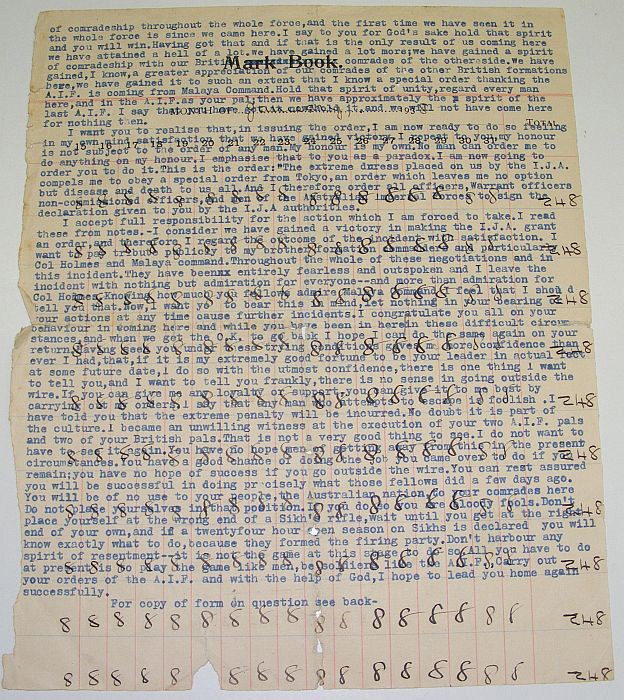 of comradeship throughout the whole force,and the first time we have seen it in
the whole force is since we came here.I say to you for God's sake hold that spirit
and you will win.Having got that and if that is the only result of us coming here
we have attained a hell of a lot.we have gained a lot more;we have gained a spirit
of comradeship with our British comrades of the otherside.We have
Mark Book.
gained,I know,a greater appreciation of our comrades of the other British formations
here,we have gained it to such an extent that I know a special order thanking the
A.I.F. is coming from Malaya Command.Hold that spirit of unity,regard every man
here,and in the A.I.F.as your pal;then we have approximately the spirit of the
last A.I.F. I say that we have and we will not have come here
for nothing then.
TOTAL
I want you to realise that,in issuing the order,I am now ready to do so feeling
in my own mind satisfaction that we have gained victory.I repeat to you,my honour
is not subject to the order of any man.My honour is my own.No man can order me to
do anything on my honour.I emphasise that to you as a paradox.I am now going to
order you to do it.This is the order:"The extreme duress placed on us by the I.J.A.
compels me to obey a special order from Tokyo,an order which leaves me no option
but disease and death to us all.And I therefore order all officers,Warrant officers
non-commissioned officers,and men of the Australian Imperial Forces to sign the
declaration given to you by the I.J.A authorities.
248
I accept full responsibility for the action which I am forced to take.I read
these from notes.-I consider we have gained a victory in making the I.J.A. grant
an order,and therefore I regard the outcome of the with satisfaction. I
want to pay tribute publicly to my brother formation commanders and particularly
248
Col Holmes and Malaya Command.Throughout the whole of these negotiations and in
this incident.They have been entirely fearless and outspoken and I leave the
incident with nothing but admiration for everyone--and more than admiration for
Col Holmes.Knowing how much you fellows admire Malaya Command,I feel that I should
248
tell you that.Now,I want you to bear this in mind,let nothing in your bearing or
your actions at any time cause further incidents.I congratulate you all on your
behaviour in coming here and while you have been in here in these difficult circum-
stances,and when we get the O.K. to go back I hope I can do the same again on your
return.Having seen you under these trying conditions gives me more confidence than
248
ever I had,that,if it is my extremely good fortune to be your leader in actual fact
at some future date,I do so with the utmost confidence,there is one thing I want
to tell you,and I want to tell you frankly,there is no sense in going outside the
wire.If you can give me any loyalty or support,you can give it to me best by
carrying I say that any man attempting escape is foolish .I
248
have told you that the extreme penalty will be incurred.No doubt it is part of
the culture.I became an unwilling witness at the execution of your two A.I.F. pals
and two of your British pals.That is not a very good thing to see.I do not want to
have to see it again.You have no hope even of getting away from this in the present
248
circumstances.You have a good chance of doing what you came oversea to do if you
remain;you have no hope of success if you go outside the wire.You can rest assured
you will be successful in doing precisely what those fellows did a few days ago.
You will be of no use to your people,the Australian nation,to your comrades here
248
Do not place yourselves in that position.If you do so you are bloody fools.Don't
place yourself at the wrong end of a Sikh's rifle,wait until you get at the right
end of your own,and if a twentyfour hour open season on Sikhs is declared you will
know exactly what to do,because they formed the firing party.Don't harbour any
spirit of resentment--it is not the game at this stage to do so.All you have to do
248
at present is to play the game like men,be soldiers like the A.I.F. Carry out
your orders of the A.I.F. and with the help of God,I hope to lead you home again
successfully.
For copy of form in question see back-
8 8 8 8 8 8 8 8 8 8 8 8 8 8 8 8 248
8 8 8 8 8 8 8 8 8 8 8 8 8 8 8 8 248